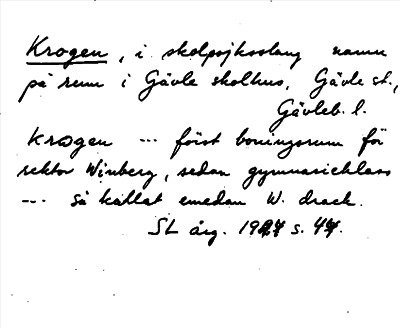 Krogen, i skolpojksslang namn
på rum i Gävle skolhus, Gävle st.,
Gävleb. l.
Krogen --- först boningsrum för
rektor Winberg, sedan gymnasieklass
--- så kallat emedan W. drack.
SL årg. 1927 s. 47.